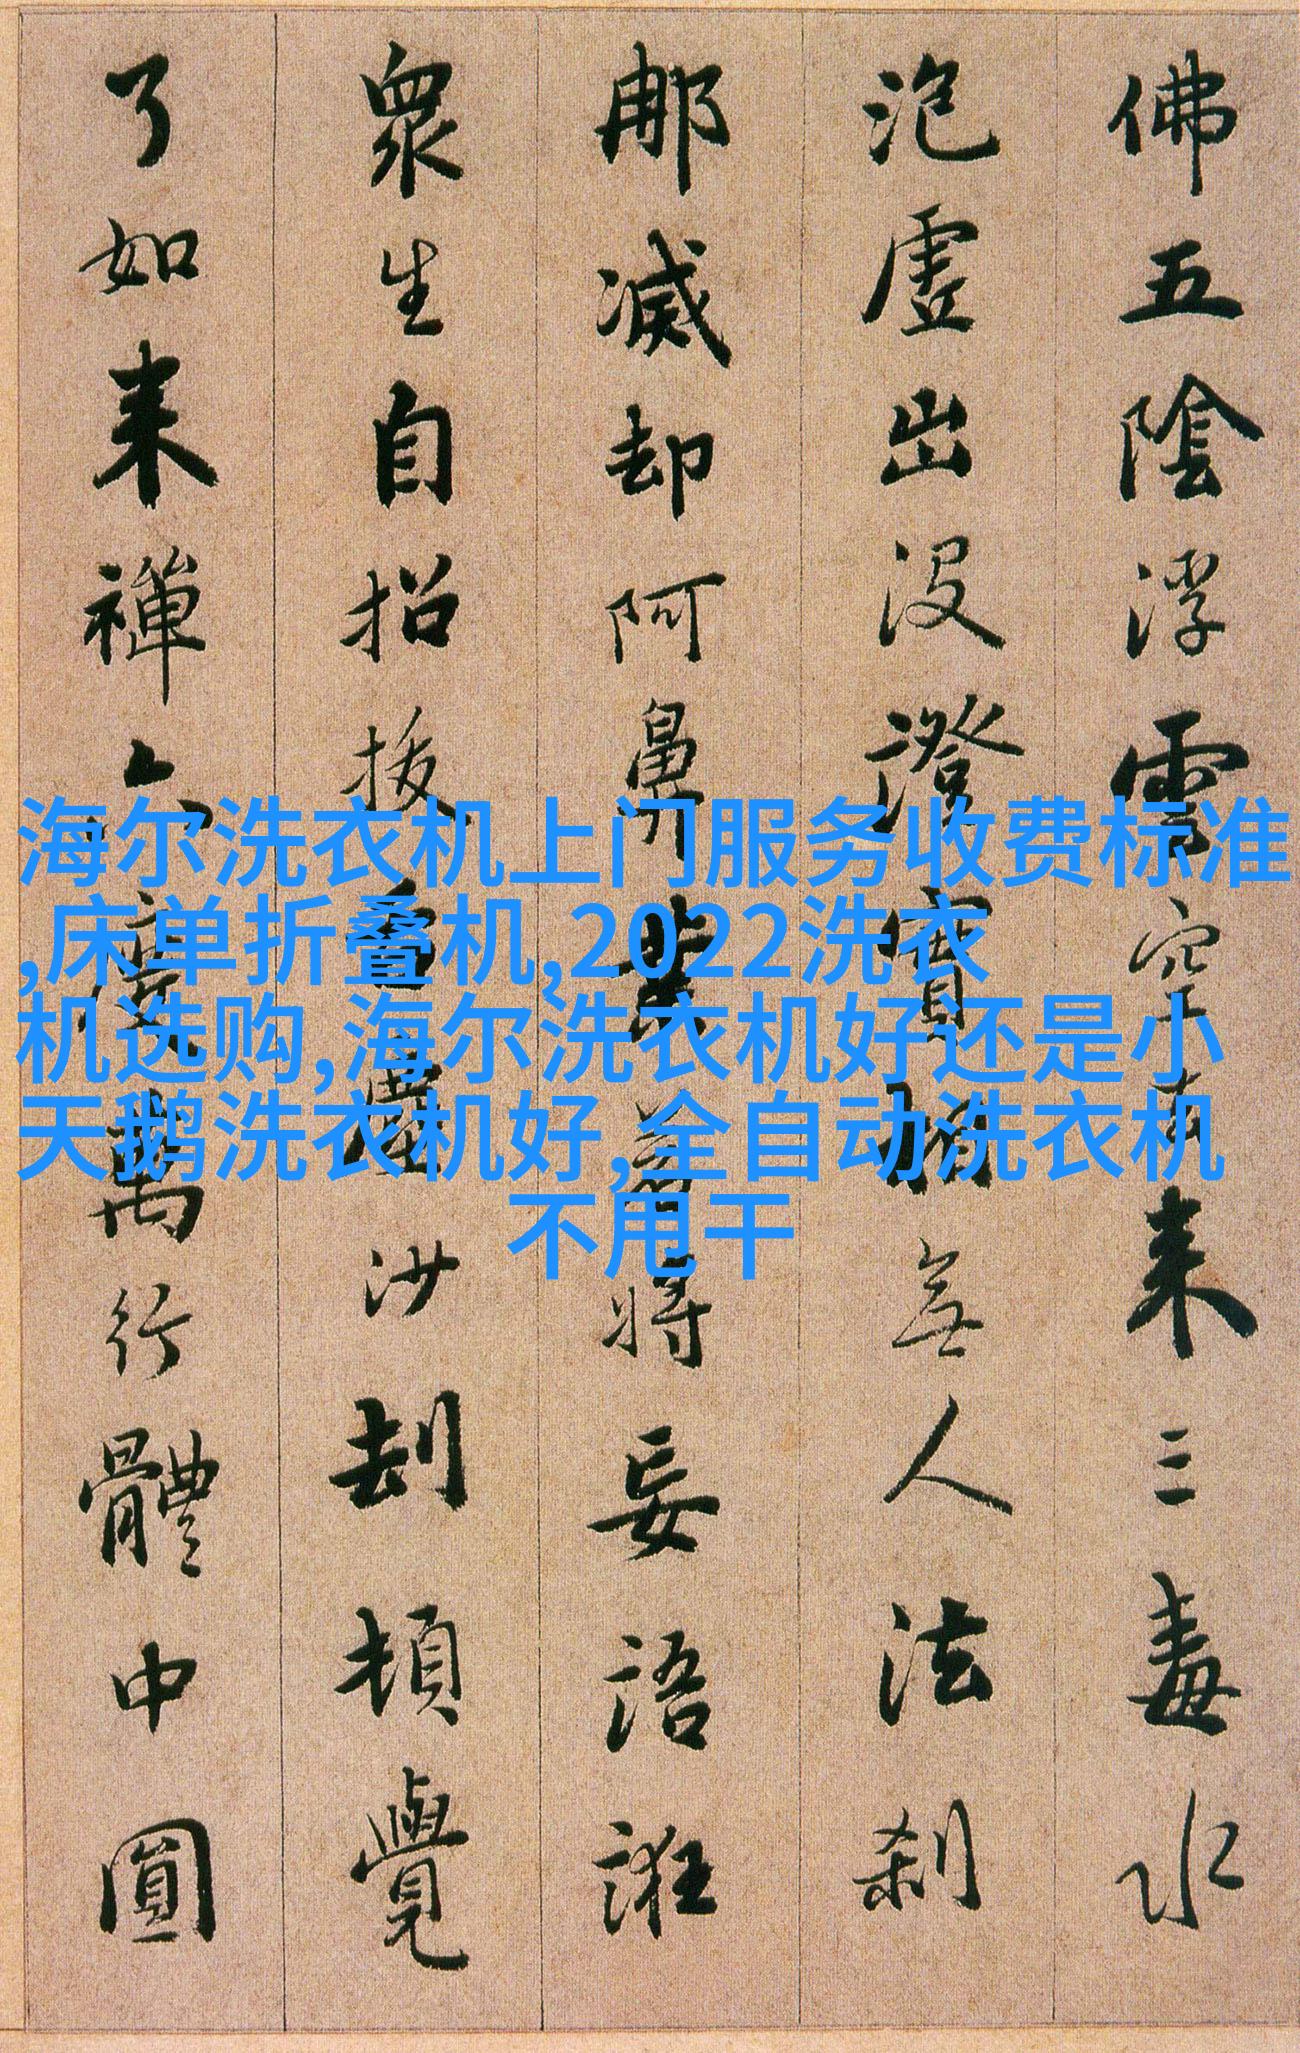 佛五陰浮雲空去來三毒水
泡虛出沒證實相無人法刹
那滅却阿鼻業若將妄語誑
眾生自招拔舌塵沙劫頓覺
了如來禪六度萬行體中圓
海尔洗衣机上门服务收费标准
,床单折叠机,2022洗衣
机选购,海尔洗衣机好还是小
天鹅洗衣机好,全自动洗衣机
不甩干